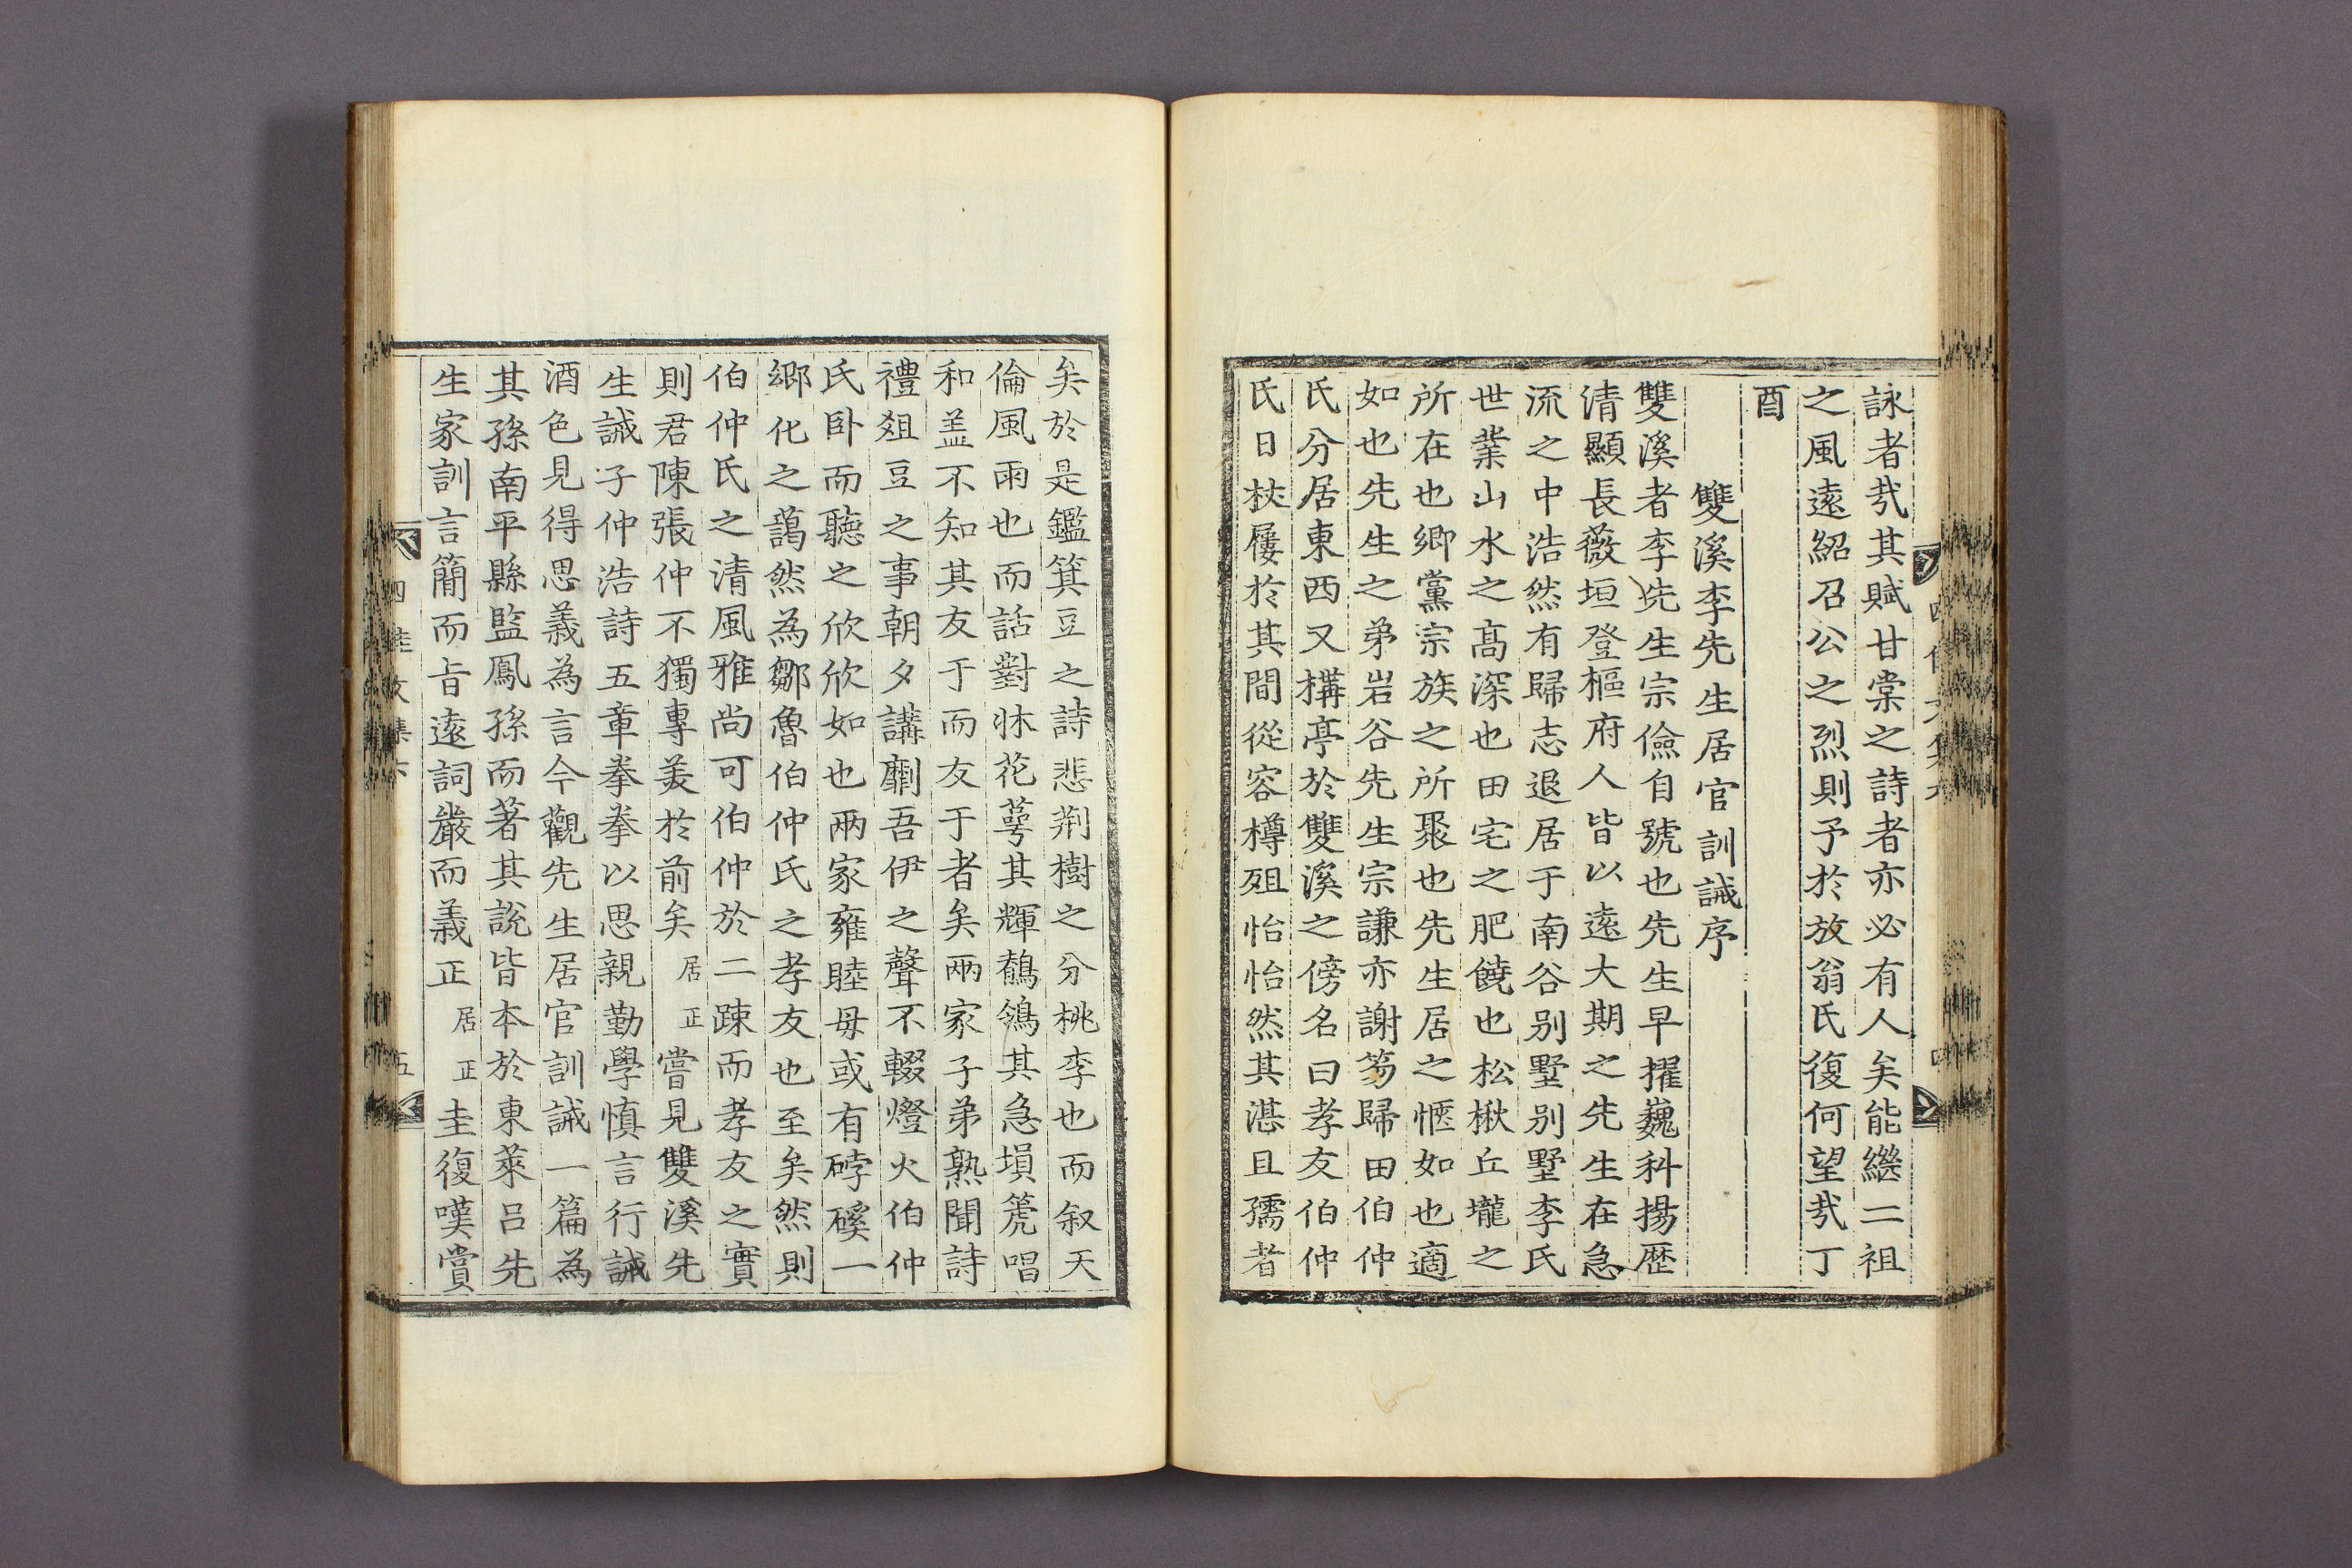 詠者㢤其賦甘棠之詩者亦必有人矣能繼二祖
之風遠紹召公之烈則予於放翁氏復何望㢤丁
酉
雙溪李先生居官訓誡序
雙溪者李先生宗儉自號也先生早擢巍科揚歷
清顯長薇垣登樞府人皆以遠大期之先生在急
流之中浩然有歸志退居于南谷别墅别墅李氏
世業山水之髙深也田宅之肥饒也松楸丘壠之
所在也鄉黨宗族之所聚也先生居之愜如也適
如也先生之弟岩谷先生宗謙亦謝笏歸田伯仲
氏分居東西又構亭於雙溪之傍名曰孝友伯仲
氏日杖屨於其間從容樽俎怡怡然其湛且孺者
矣於是鑑箕豆之詩悲荆樹之分桃李也而叙天
倫風雨也而話對牀花萼其輝鶺鴒其急塤篪唱
和盖不知其友于而友于者矣兩家子弟熟聞詩
禮俎豆之事朝夕講劘吾伊之聲不輟燈火伯仲
氏卧而聽之欣欣如也兩家雍睦毋或有硣磎一
鄉化之藹然為鄒魯伯仲氏之孝友也至矣然則
伯仲氏之清風雅尚可伯仲於二踈而孝友之實
則君陳張仲不獨專美於前矣居正嘗見雙溪先
生誡子仲浩詩五章拳拳以思親勤學慎言行誡
酒色見得思義為言今觀先生居官訓誡一篇為
其孫南平縣監鳳孫而著其說皆本於東萊呂先
生家訓言簡而旨遠詞嚴而義正居正圭復嘆賞
五